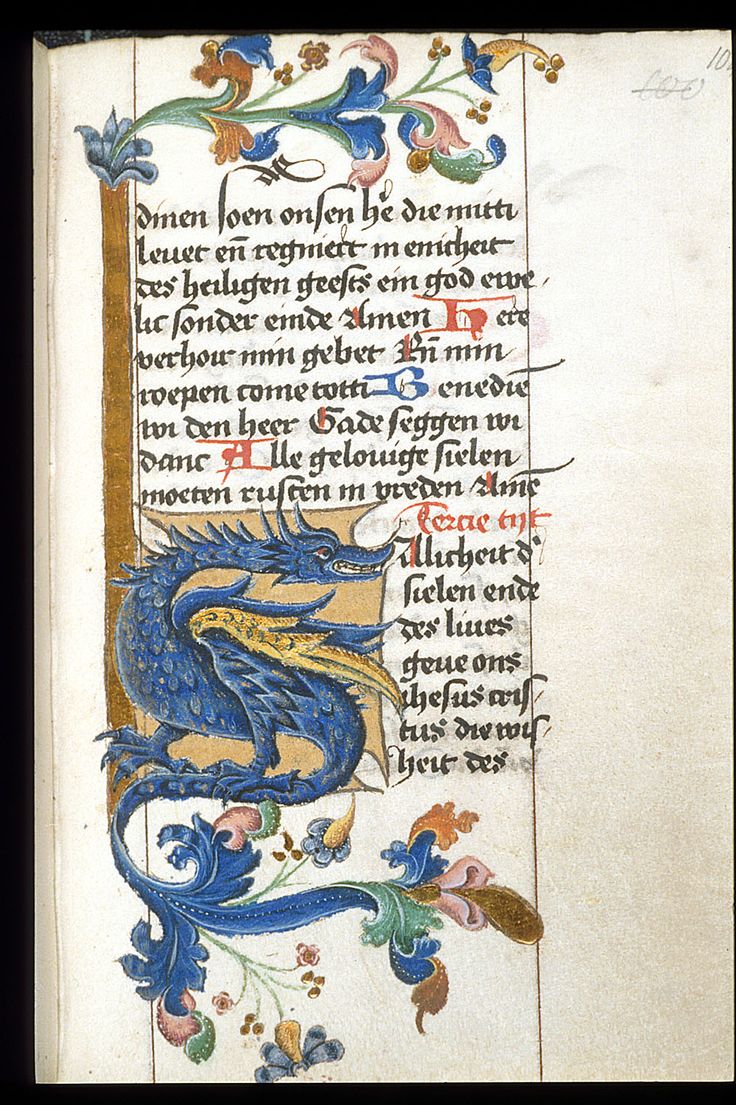 100
dinen soen onsen he᷒ die mitti
levet eñ regniert in enicheit
des heiligen geests ein god ewe-
lic sonder einde Amen Here
verhoir min gebet Eñ min
roepen come totti Benediē
wi den heer Gade seggen wi
danc Alle gelovige sielen
moeten rusten in vreden Amē
Tercie tijt
Sillicheit d'
sielen ende
des lives
geve ons
ihesus cris-
tus die wis-
heit des